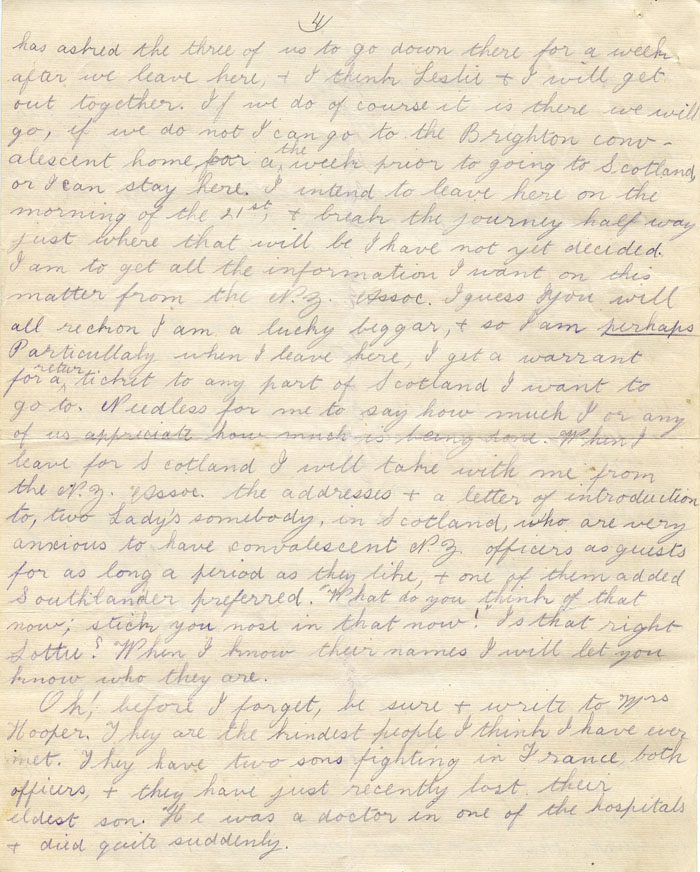 4
has asked the three of us to go down there for a week
after we leave here, + I think Leslie + I will get
out together. If we do of course it is there we will
go, if we do not I can go to the Brighton conv-
alescent home for a the week prior to going to Scotland,
or I can stay here. I intend to leave here on the
morning of the 21st, + break the journey half way
just where that will be I have not yet decided.
I am to get all the information I want on this
matter from the N.Z. Assoc. I guess you will
all reckon I am a lucky beggar, + so I am perhaps
Particullaly when I leave here, I get a warrant
for a return ticket to any part of Scotland I want to
go to. Needless for me to say how much I or any
of us appreciate how much is being done. When I
leave for Scotland I will take with me from
the N.Z. Assoc. the addresses + a letter of introduction
to, two Lady's somebody, in Scotland, who are very
anxious to have convalescent N.Z. officers as guests
for as long a period as they like, + one of them added
Southlander preferred. "What do you think of that
now; stick you nose in that now!" Is that right
Lottie? When I know their names I will let you
know who they are.
Oh! before I forget, be sure + write to Mrs
Hooper. They are the kindest people I think I have ever
met. They have two sons fighting in France, both
officers, + they have just recently lost their
eldest son. He was a doctor in one of the hospitals
+ died quite suddenly.